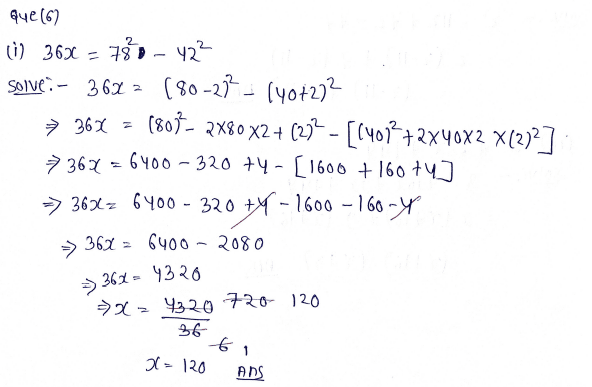 Que(6)
(i) 36x = 78² - 42²
Solve:- 36x = (80-2)² - (40+2)²
⇒ 36x = (80)² - 2×80×2 + (2)² - [(40)² + 2×40×2 × (2)²]
⇒ 36x = 6400 - 320 + 4 - [1600 + 160 + 4]
⇒ 36x = 6400 - 320 + 4 - 1600 - 160 - 4
⇒ 36x = 6400 - 2080
⇒ 36x = 4320
⇒ x = 4320 720 120
36
6 1
x = 120 Ans